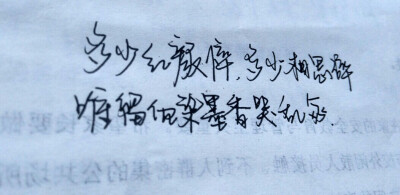 多少红颜悴,多少相思碎
唯留血染墨香哭乱冢.